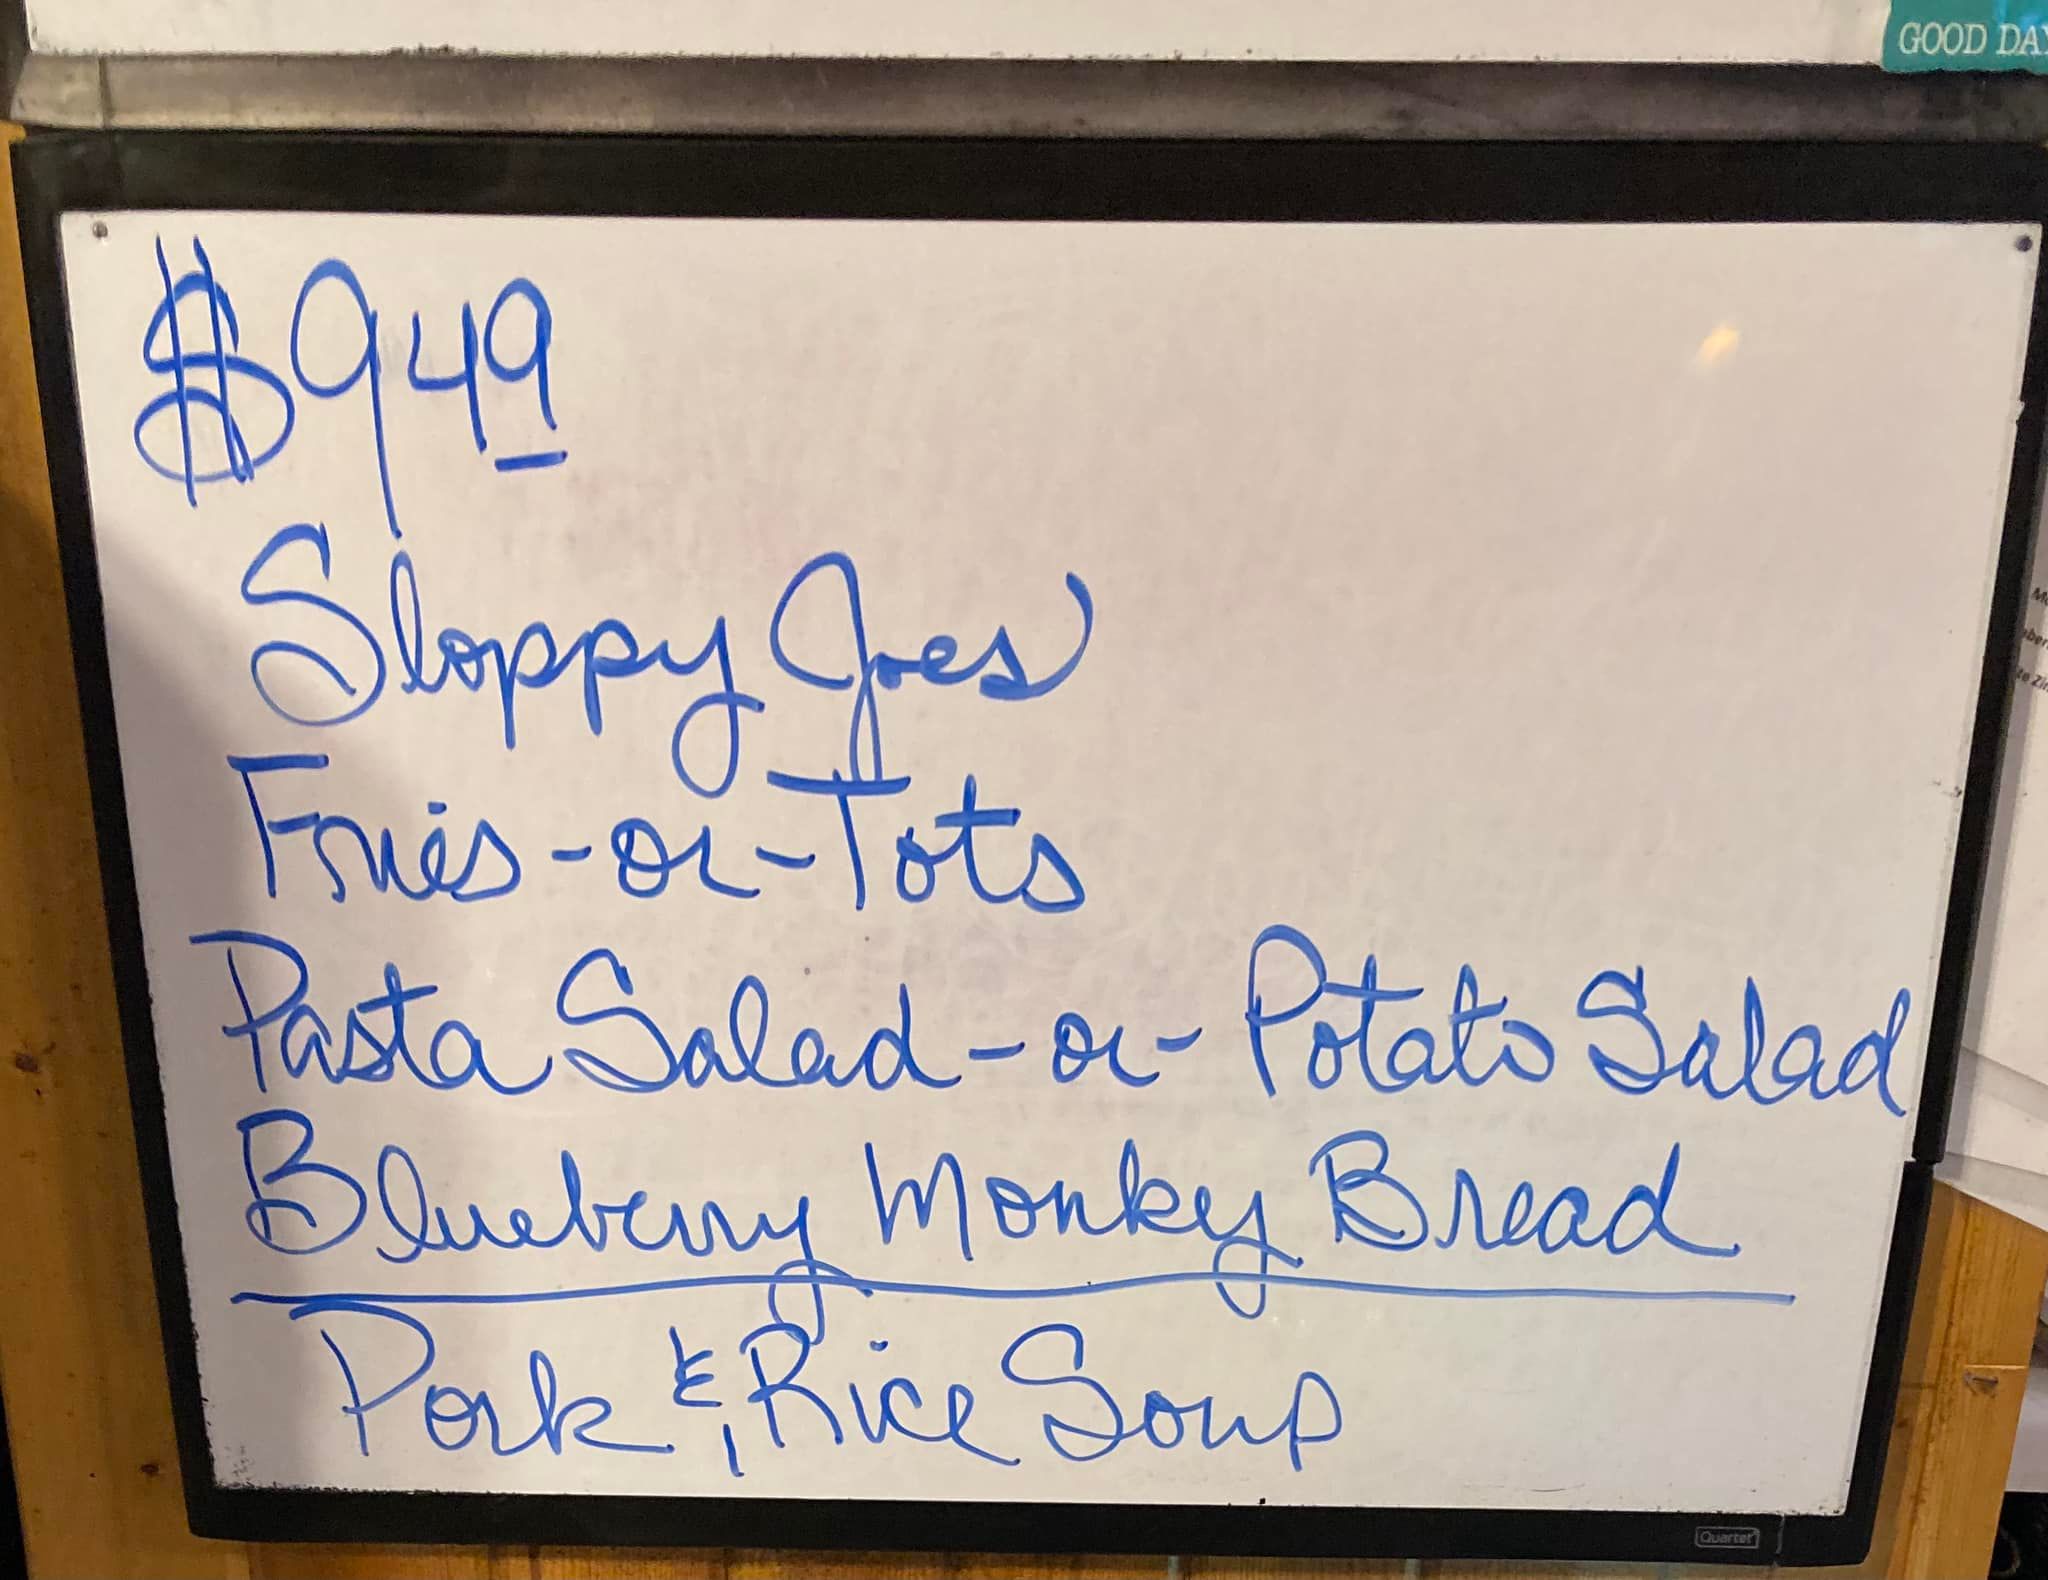 GOOD DAY
$949
Sloppy Joes
Fries-or-Tots
Pasta Salad-or-Potato Salad
Blueberry Monkey Bread
Pork & Rice Soup
Quartet